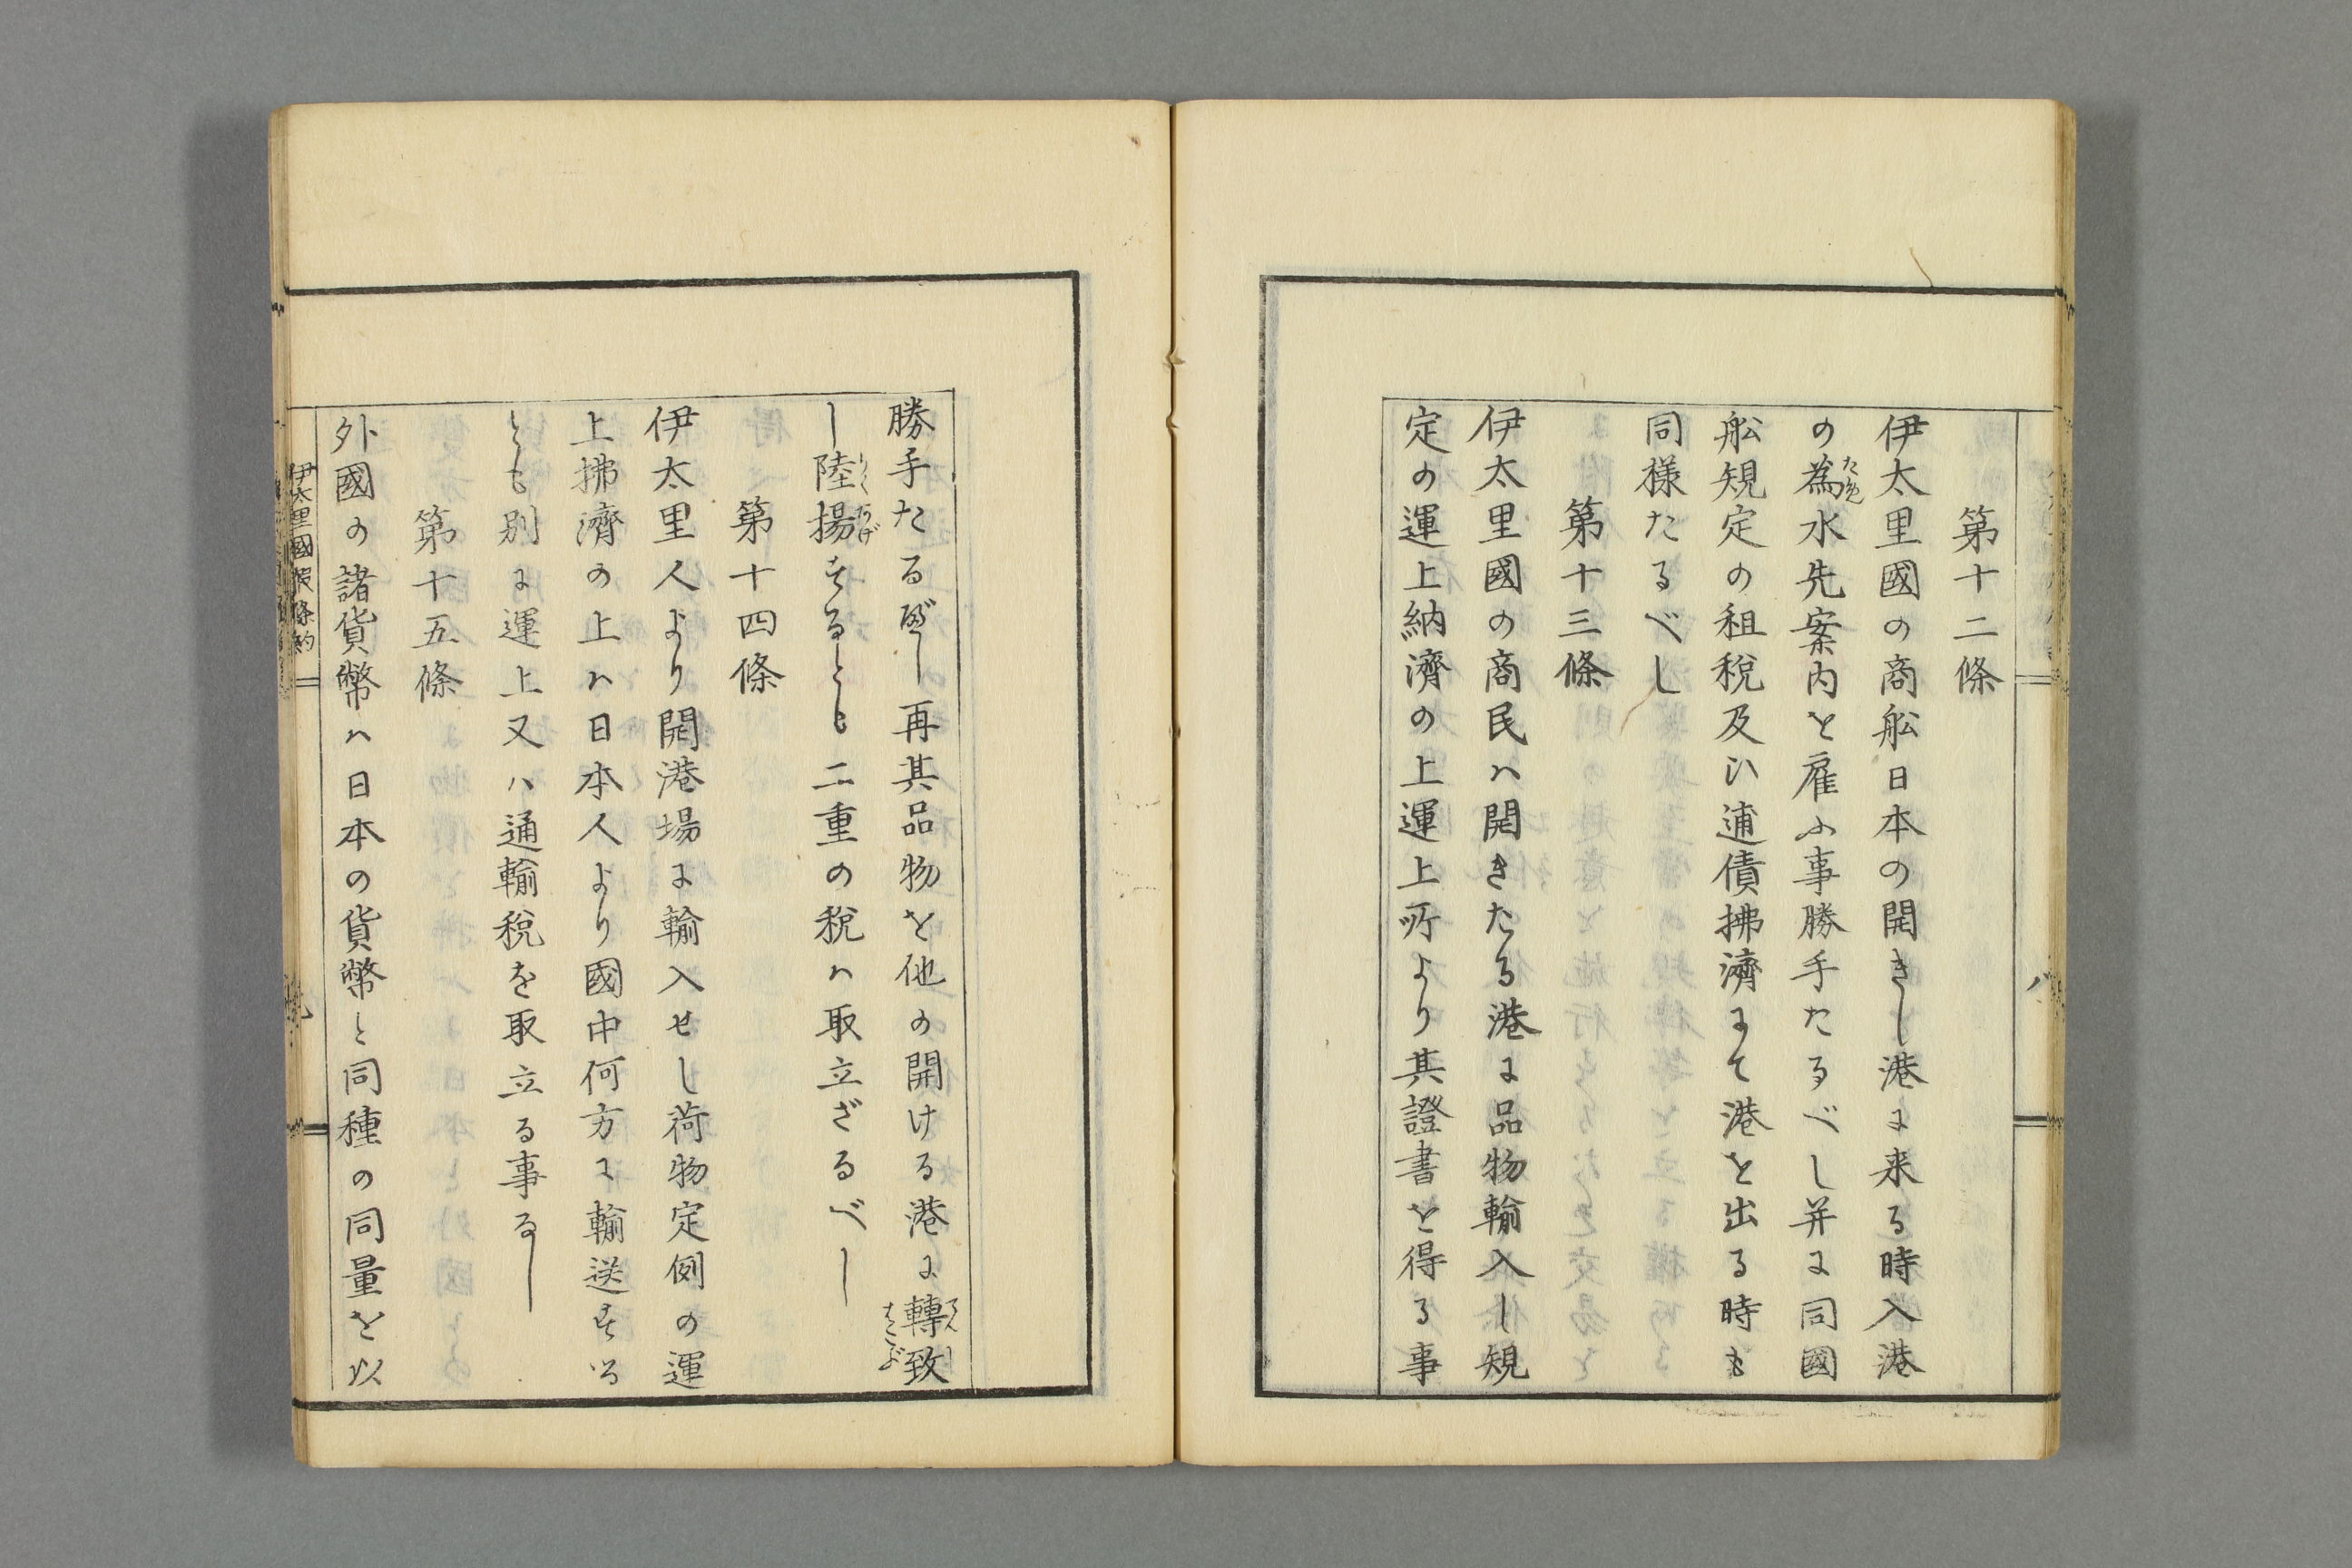 第十二條
伊太里國の商舩日本の開きし港に来る時入港
の為水先案内を雇ふ事勝手たるべし并に同國
舩規定の租税及ひ逋債拂濟にて港を出る時も
同様たるべし
第十三條
伊太里國の商民ハ開きたる港に品物輸入し規
定の運上納濟の上運上所より其證書を得る事
八
勝手たるべし再其品物を他の開ける港に轉致
し陸揚するとも二重の税ハ取立ざるべし
第十四條
伊太里人より開港場に輸入せし荷物定例の運
上拂濟の上ハ日本人より國中何方に輸送する
とも別に運上又ハ通輸税を取立る事なし
第十五條
外國の諸貨幣ハ日本の貨幣と同種の同量を以
伊太里國假條約